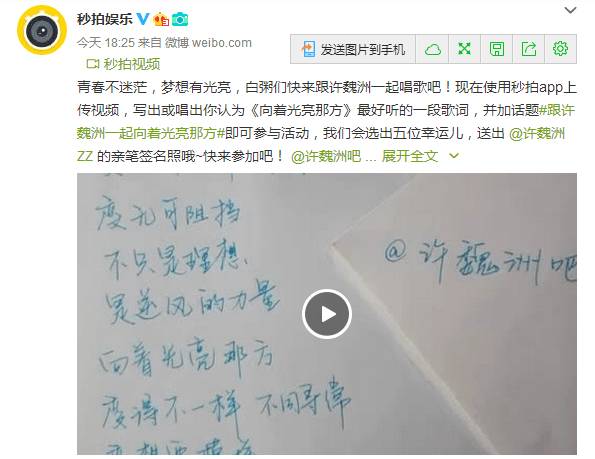 秒拍娱乐
今天 18:25 来自 微博 weibo.com
发送图片到手机
秒拍视频
青春不迷茫，梦想有光亮，白粥们快来跟许魏洲一起唱歌吧！现在使用秒拍app上
传视频，写出或唱出你认为《向着光亮那方》最好听的一段歌词，并加话题#跟许
魏洲一起向着光亮那方#即可参与活动，我们会选出五位幸运儿，送出 @许魏洲
ZZ 的亲笔签名照哦~快来参加吧！ @许魏洲吧 ... 展开全文
变无可阻挡
不只是理想.
@许魏洲吧
是逆风的力量
向着光亮那方
变得不一样 不同寻常